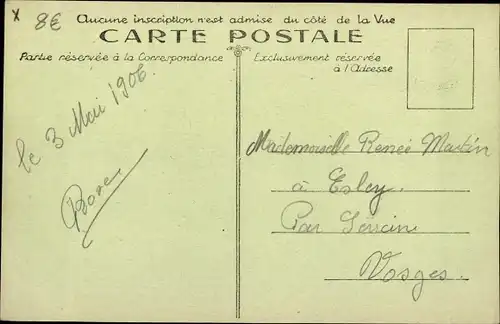 x 8€
Aucune inscription n'est admise du côté de la Vue
CARTE POSTALE
Partie réservée à la Correspondance
Exclusivement réservée
à l'Adresse
le 3 Mai 1906
Mademoiselle Renée Martin
à Esley.
Par
Vosges.